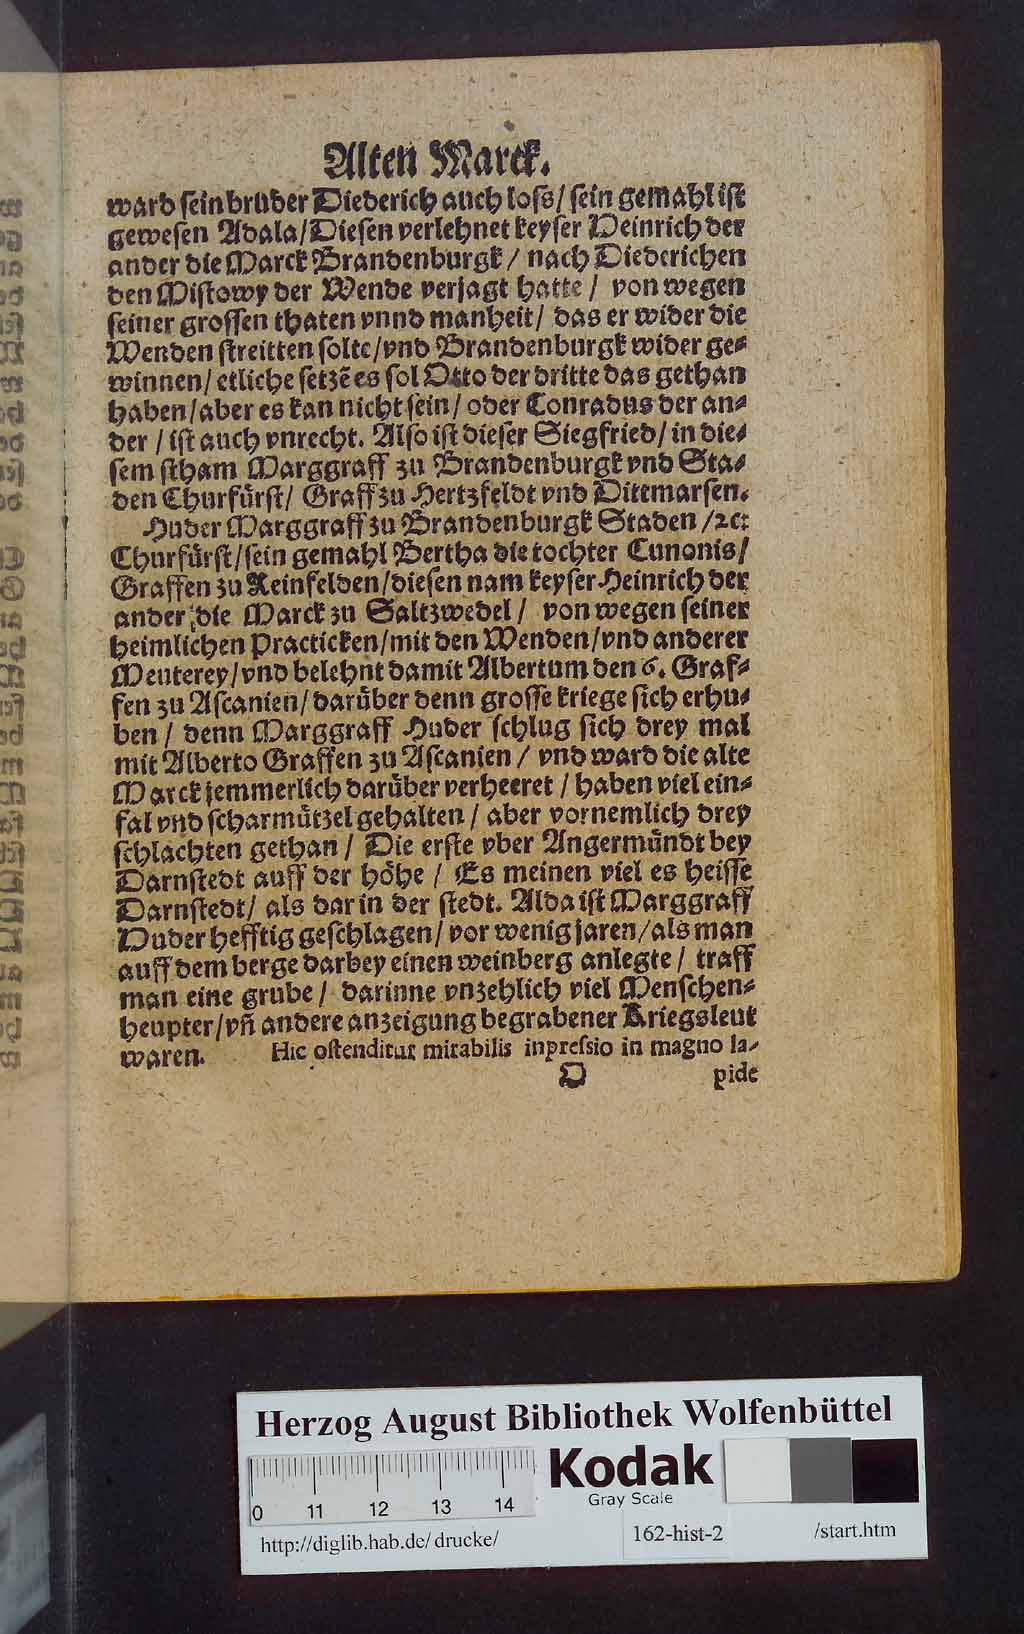 Alten Marck.
ward sein bruder Diederich auch loss/ sein gemahl ist
gewesen Adala/ Diesen verlehnet keyser Heinrich der
ander die Marck Brandenburgk/ nach Diederichen
den Mistowy der Wende verjagt hatte/ von wegen
seiner grossen thaten vnnd manheit/ das er wider die
Wenden streitten solte/ vnd Brandenburgk wider ge-
winnen/ etliche setzẽ es sol Otto der dritte das gethan
haben/ aber es kan nicht sein/ oder Conradus der an-
der/ ist auch vnrecht. Also ist dieser Siegfried/ in die-
sem stham Marggraff zu Brandenburgk vnd Sta-
den Churfürst/ Graff zu Hertzfeldt vnd Dittmarsen.
Huder Marggraff zu Brandenburgk Staden/ ꝛc:
Churfürst/ sein gemahl Bertha die tochter Cunonis/
Graffen zu Reinfelden/ diesen nam keyser Heinrich der
ander die Marck zu Saltzwedel/ von wegen seiner
heimlichen Practicken/ mit den Wenden/ vnd anderer
Meuterey/ vnd belehnt damit Albertum den 6. Graf-
fen zu Ascanien/ darüber denn grosse kriege sich erhu-
ben/ denn Marggraff Huder schlug sich drey mal
mit Alberto Graffen zu Ascanien/ vnd ward die alte
Marck jemmerlich darüber verheeret/ haben viel ein-
fal vnd scharmützel gehalten/ aber vornemlich drey
schlachten gethan/ Die erste vber Angermündt bey
Darnstedt auff der höhe/ Es meinen viel es heisse
Darnstedt/ als dar in der stedt. Alda ist Marggraff
Huder hefftig geschlagen/ vor wenig jaren/ als man
auff dem berge darbey einen weinberg anlegte/ traff
man eine grube/ darinne vnzehlich viel Menschen-
heupter/ vñ andere anzeigung begrabener Kriegsleut
waren. Hic ostenditur mirabilis inpressio in magno la-
D pide
Herzog August Bibliothek Wolfenbüttel
Kodak
Gray Scale
0 11 12 13 14
http://diglib.hab.de/drucke/ 162-hist-2 /start.htm